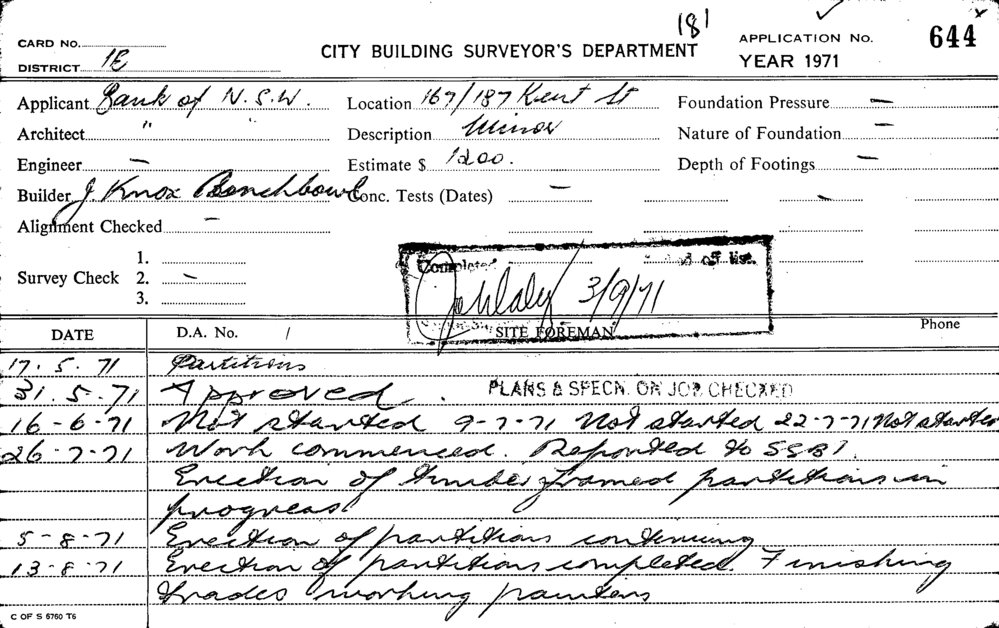 181
CARD No.
DISTRICT 1E
CITY BUILDING SURVEYOR'S DEPARTMENT
APPLICATION No. 644
YEAR 1971
Applicant Bank of N.S.W. Location 167/187 Kent St Foundation Pressure —
Architect " " Description Minor Nature of Foundation —
Engineer — Estimate $ 1200. Depth of Footings —
Builder J. Knox Benchbowl Conc. Tests (Dates) — —
Alignment Checked —
1.
Survey Check 2. —
3.
Completed off list.
3/9/71
SITE FOREMAN
DATE D.A. No. / Phone
17. 5. 71 Partitions
31. 5. 71 Approved. PLANS & SPECN. ON JOB CHECKED
16-6-71 Not started 9-7-71 Not started 22-7-71 Not started
26-7-71 Work commenced. Reported to SSBI.
Erection of timber framed partitions in
progress
5-8-71 Erection of partitions continuing
13-8-71 Erection of partitions completed. Finishing
trades working painters
C OF S 6760 T6